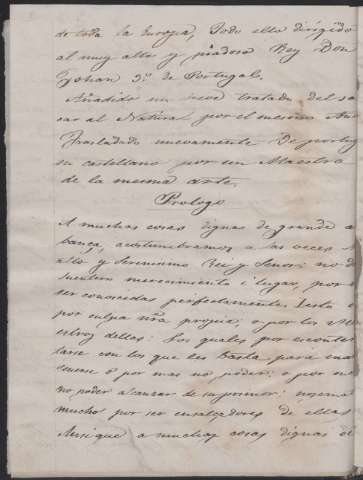 de toda la Europa, Todo ello dirigido
al muy alto y piadoso Rey Don
Johan 3º de Portugal.
Añadido un tratado del sa
car al Natural por el mesmo Au
Trasladado nuevamente De portug
en castellano por un Maestro
de la mesma arte.
Prologo
A muchas cosas dignas de grande a
banca, acostumbramos a las veces
alto y Serenissimo Rei y Senor: no d
merecimiento i lugar, por
ser conocidas perfectamente. I esto
por culpa nra propria: o por los M
estros dellas: Los quales por
tarse con lo que les basta para
o por mas no poder: o por
no poder alcanzar de su primor:
mucho por ser ensalzadores de ellas
Aunque a muchas cosas dignas de